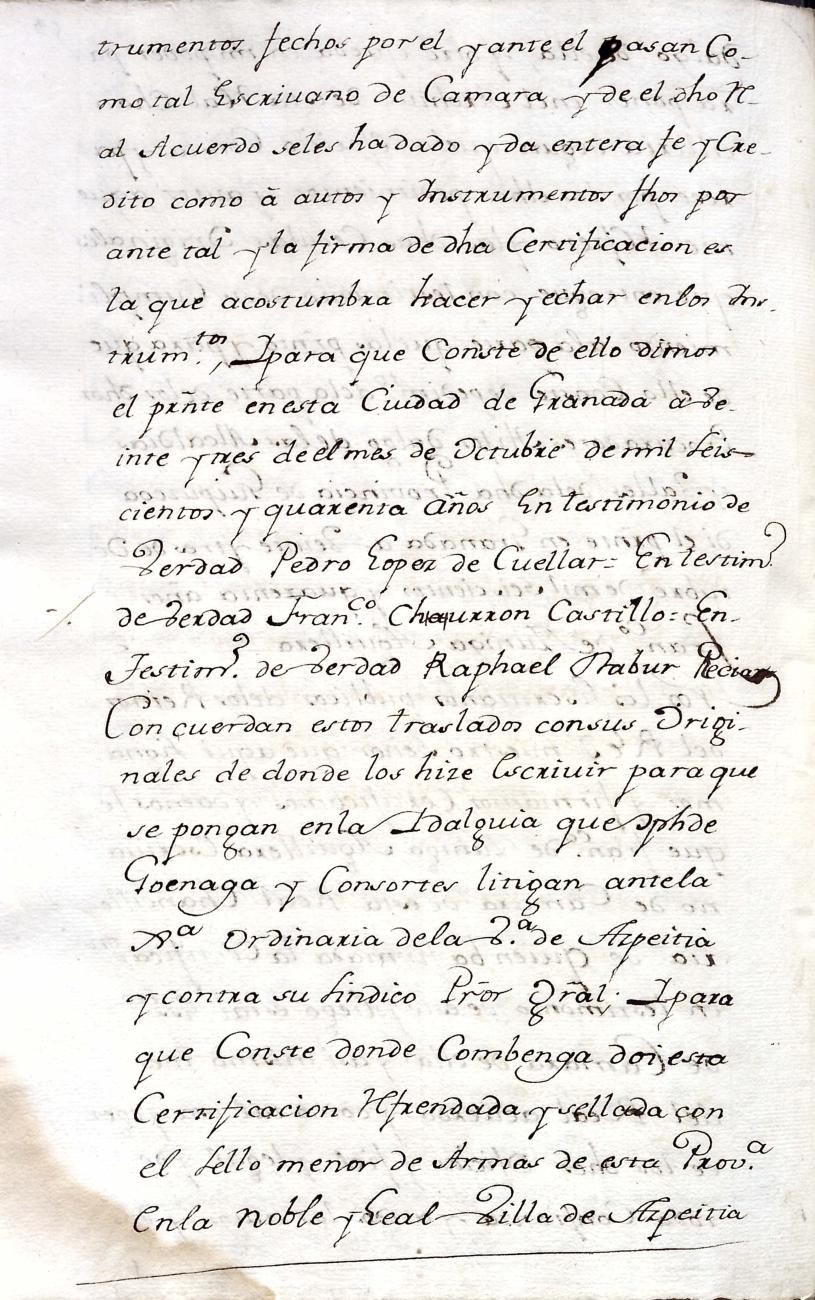 trumentos fechos por el y ante el pasan Co-
mo tal Escrivano de Camara y de el dho R-
al Acuerdo seles ha dado y da entera fe y Cre-
dito como â autos y Instrumentos fhos por
ante tal y la firma de dha Certificacion es
la que acostumbra hacer y echar en los Ins-
trum.tos, I para que Conste de ello dimos
el prñte en esta Ciudad de Granada a Ve-
inte y tres de el mes de Octubre de mil seis-
cientos y quarenta años En testimonio de
Verdad Pedro Lopez de Cuellar = En testim.o
de Verdad Fran.co Chaurron Castillo = En-
Testim.o de Verdad Raphael Nabur
Concuerdan estos traslados con sus Origi-
nales de donde los hize Escrivir para que
se pongan en la Idalguia que Jph de
Goenaga y Consortes litigan ante la
Ordinaria de la V.a de Azpeitia
y contra su sindico Pr̃or Gr̃al. I para
que Conste donde Combenga doi esta
Certificacion Refrendada y sellada con
el sello menor de Armas de esta Prov.a
En la Noble y Leal Villa de Azpeitia